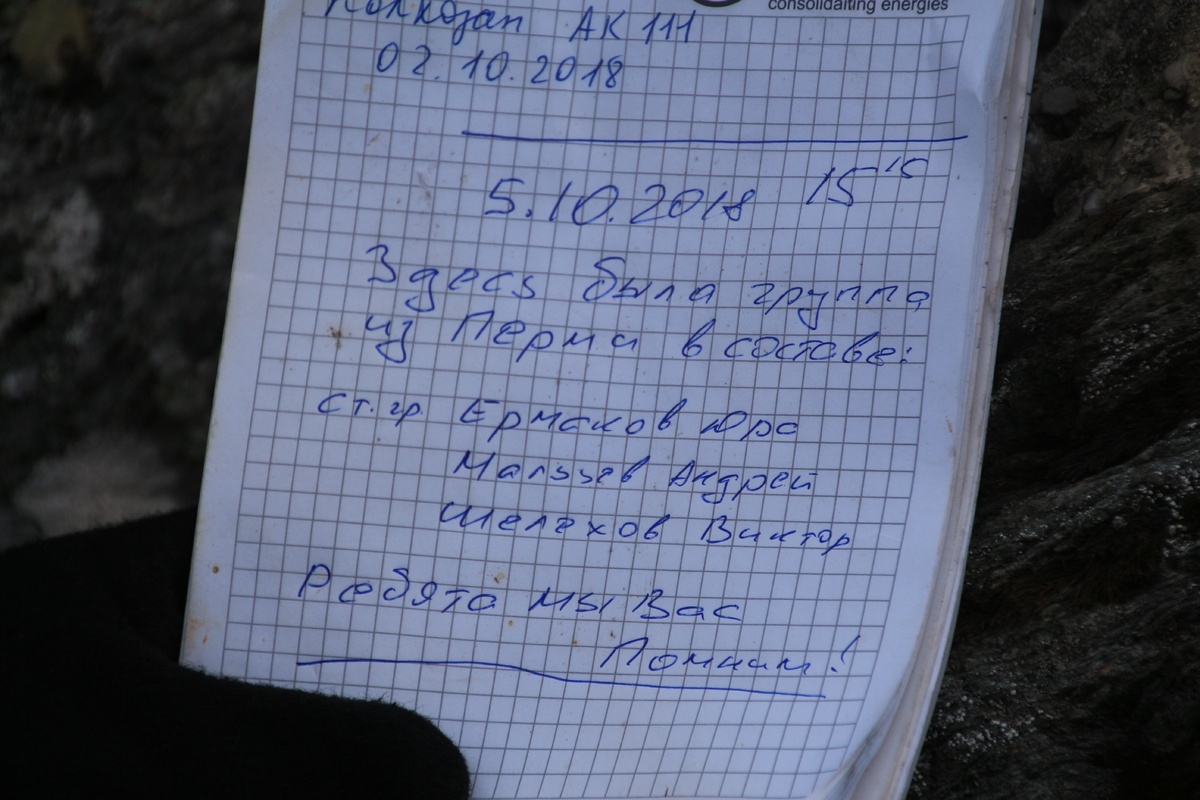 consolidaiting energies
АК 111
02.10.2018
5.10.2018 15 15
Здесь была группа
из Перми в составе:
ст.гр. Ермаков Юра
Мальцев Андрей
Шелехов Виктор
Ребята мы Вас
Помним!